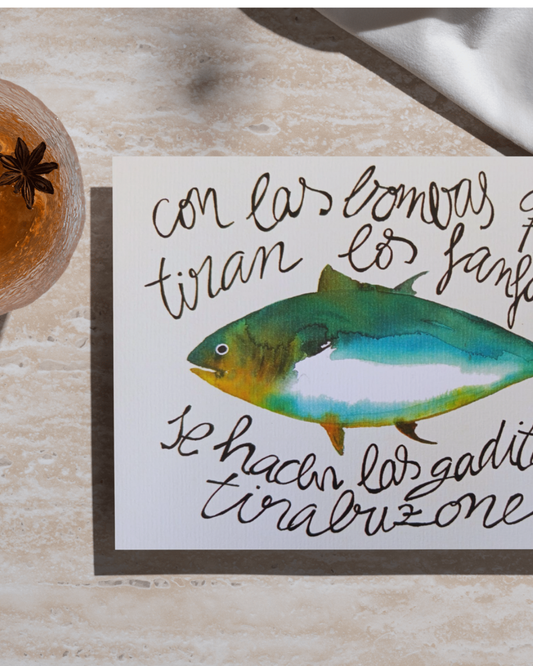 con las bombas
tiran los fanfa
se hacen las gadita
tirabuzone